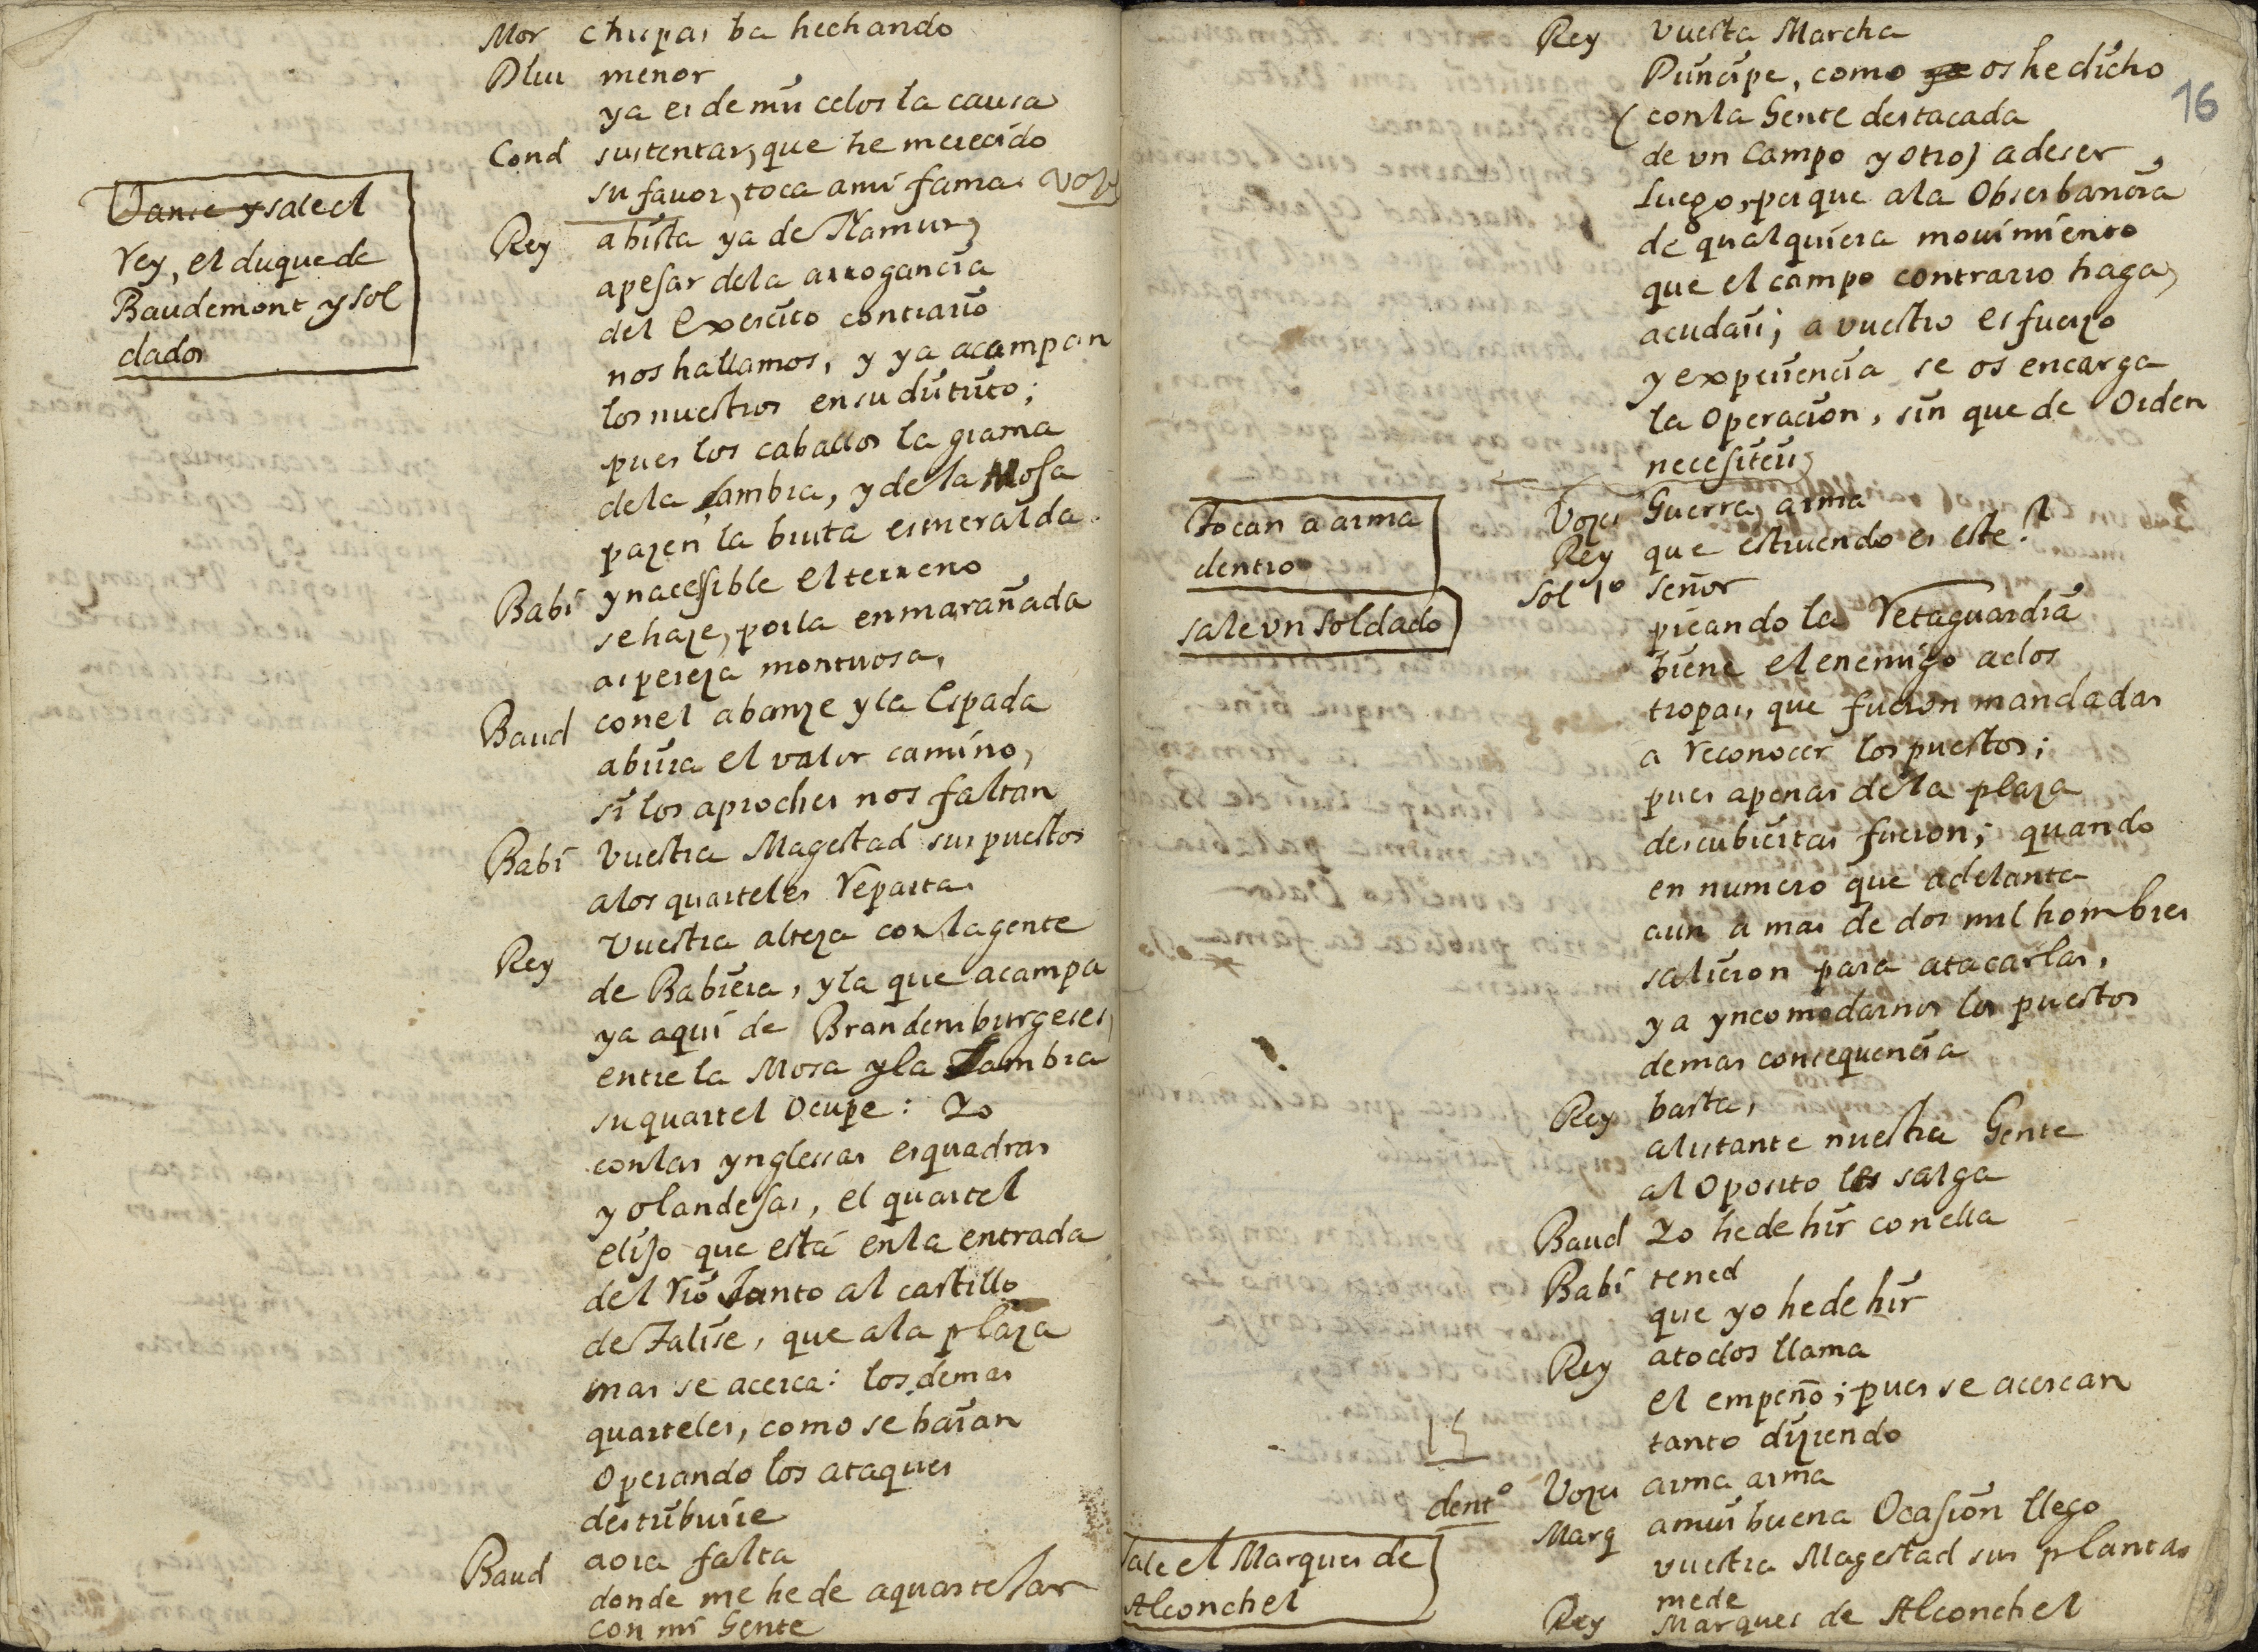 Mor chispas ba hechando
Blu menor
ya es de mis celos la causa
Cond sustentar, que he merecido
su fauor, toca a mi fama
Vanse y sale el
Rey, el duque de
Baudemont y sol
dados
Rey abista ya de Namur,
apesar dela arrogancia
del exercito contrario
nos hallamos, y ya acampan
los nuestros ensu distrito;
pues los caballos la grama
dela Sambra, y dela Mosa
pazen la bruta esmeralda
Babi ynacessible el terreno
se haze, por la enmarañada
aspereza montuosa,
Baud conel abanze y la espada
abrira el valor camino,
si los aproches nos faltan
Babi Vuestra Magestad sus puestos
alos quarteles reparta
Rey Vuestra alteza con la gente
de Babiera, y la que acampa
ya aqui de Brandemburgeses,
entre la Mosa y la Sambra
su quartel Ocupe: Yo
con las ynglesas esquadras
y olandesas, el quartel
elijo que está en la entrada
del rio Junto al castillo
de Falise, que ala plaza
mas se acerca: los demas
quarteles, como se baian
Operando los ataques
destribuire
Baud aora falta
donde me he de aquartelar
con mi Gente
16
Rey Vuestra Marcha
Principe, como ya os he dicho
(con la Gente destacada
de vn Campo y otro) a de ser
luego, porque ala Obserbancia
de qualquiera mouimiento
que el campo contrario haga,
acudais; a vuestro esfuerzo
y experiencia se os encarga
la Operacion, sin que de Orden
necesiteis,
Tocan a arma
dentro
Vozes Guerra, arma
Rey que estruendo es este?
sale vn soldado
Sol 1º señor
picando la Retaguardia
biene el enemigo a dos
tropas, que fueron mandadas
a reconocer los puestos;
pues apenas de la plaza
descubiertas fueron; quando
en numero que adelanta
aun a mas de dos mil hombres
salieron para atacarlas,
y a yncomodarnos los puestos
demas consequencia
Rey basta,
al istante nuestra Gente
al Oposito les salga
Baud Yo he de hir con ella
Babi tened
que yo he de hir
Rey a todos llama
el empeño; pues se acercan
tanto diziendo
dentº Vozes arma arma
Marq a mui buena Ocasion llego
vuestra Magestad sus plantas
me de
sale el Marques de
Alconchel
Rey Marques de Alconchel